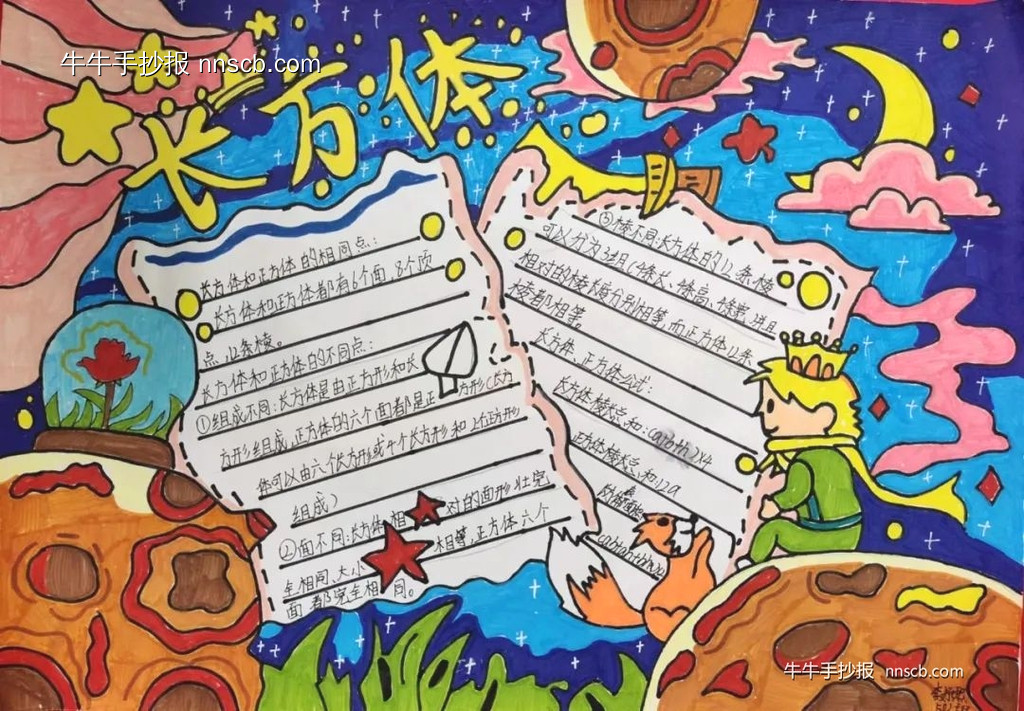 牛牛手抄报 nnscb.com
长方体
长方体和正方体的相同点：
长方体和正方体都有6个面 8个顶
点，12条棱。
长方体和正方体的不同点：
①组成不同：长方体是由正方形和长
方形组成，正方体的六个面都是正方形（长方
体可以由六个长方形或 个长方形和2个正方形
组成）
②面不同：长方体相 对的面形状完
全相同、大小 相等，正方体六个
面都完全相同。
③棱不同：长方体的12条棱
可以分为3组（4条长、4条高、4条宽，
相对的棱长度分别相等，而正方体12条
棱都相等。
长方体、正方体公式：
长方体棱长总和：(a+b+h)×4
正方体棱长总和12a
牛牛手抄报 nnscb.com